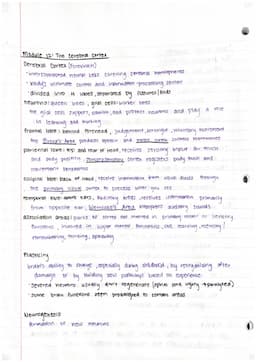 Module 12: The cerebral cortex
Cerebral Cortex (forebrain)
- interconnected neural cells covering cerebral hemispheres
- body's ultimate control and information-processing center
- divided into 4 lobes, separated by fissures/folds
neurons: queen bees, glial cells: worker bees
the glial cells support, nourish, and protect neurons and play a role
in learning and thinking
frontal lobe: behind forehead, judgement, voluntary movement
the Broca's Area produces speech and motor cortex controls movements
parietal lobe: top and rear of head, receives sensory input for touch
and body position. Somatosensory cortex registers body touch and
movement sensations
occipital lobe: back of head, receive information from visual fields through
the primary visual cortex to process what you see
temporal lobe: above ears, auditory areas receives information primarily
from opposite ear. Wernicke's Area interprets auditory sounds
association areas: parts of cortex not involved in primary motor or sensory
functions, involved in higher mental functions, ex. learning, memory/
remembering, thinking, speaking
Plasticity
brain's ability to change, especially during childhood, by reorganizing after
damage or by building new pathways based on experience
- severed neurons usually don't regenerate (spinal cord injury = paralyzed)
- some brain functions often preassigned to certain areas
Neurogenesis
formation of new neurons